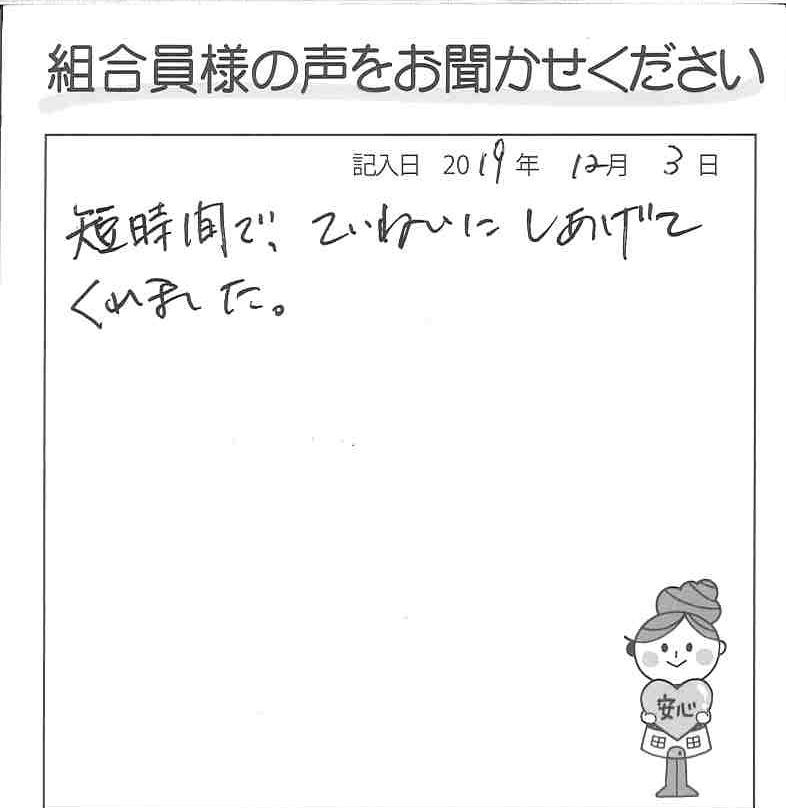 組合員様の声をお聞かせください
記入日 2019年 12月 3日
短時間で、ていねいにしあげて
くれました。
安心